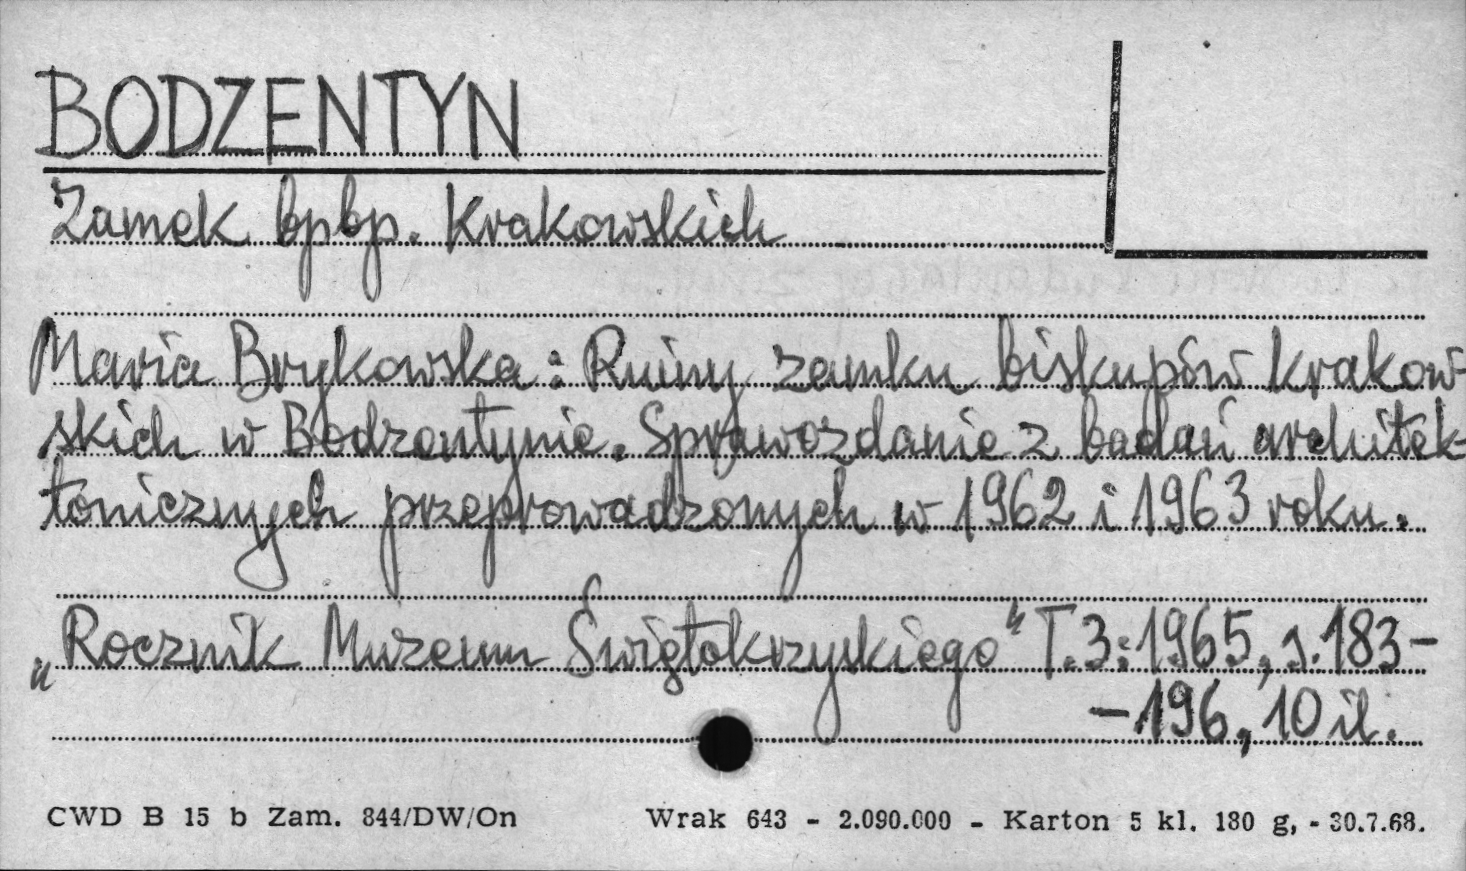 BODZENTYN
Zamek bpbp. Krakowskich
Maria Brykowska: Ruiny zamku biskupów krakow-
skich w Bodzentynie. Sprawozdanie z badań architek-
tonicznych przeprowadzonych w 1962 i 1963 roku.
„Rocznik Muzeum Świętokrzyskiego" T.3:1965, s.183-
-196, 10 il.
CWD B 15 b Zam. 844/DW/On Wrak 643 - 2.090.000 - Karton 5 kl. 180 g, - 30.7.68.